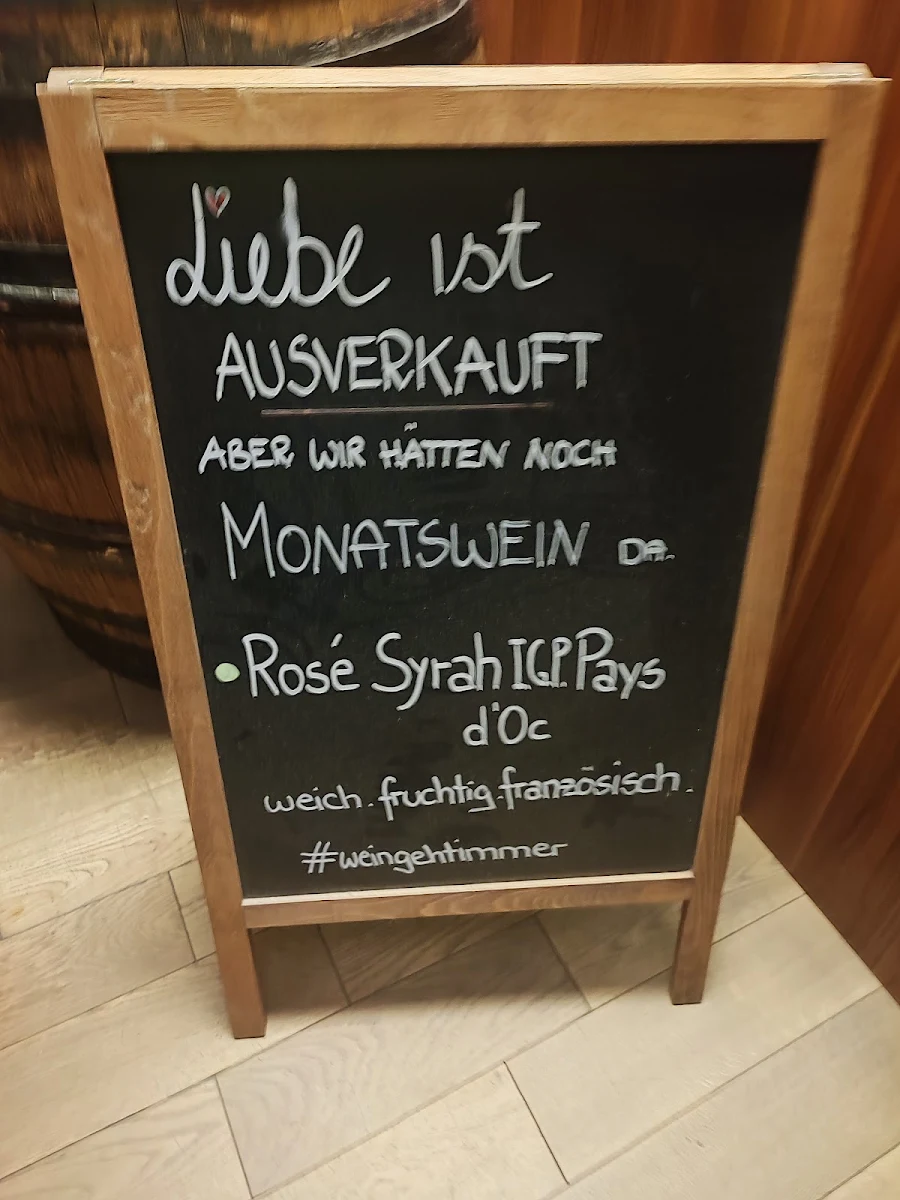 Liebe ist
AUSVERKAUFT
ABER WIR HÄTTEN NOCH
MONATSWEIN DA.
Rosé Syrah IGP Pays
d'Oc
weich. fruchtig. französisch.
#weingehtimmer